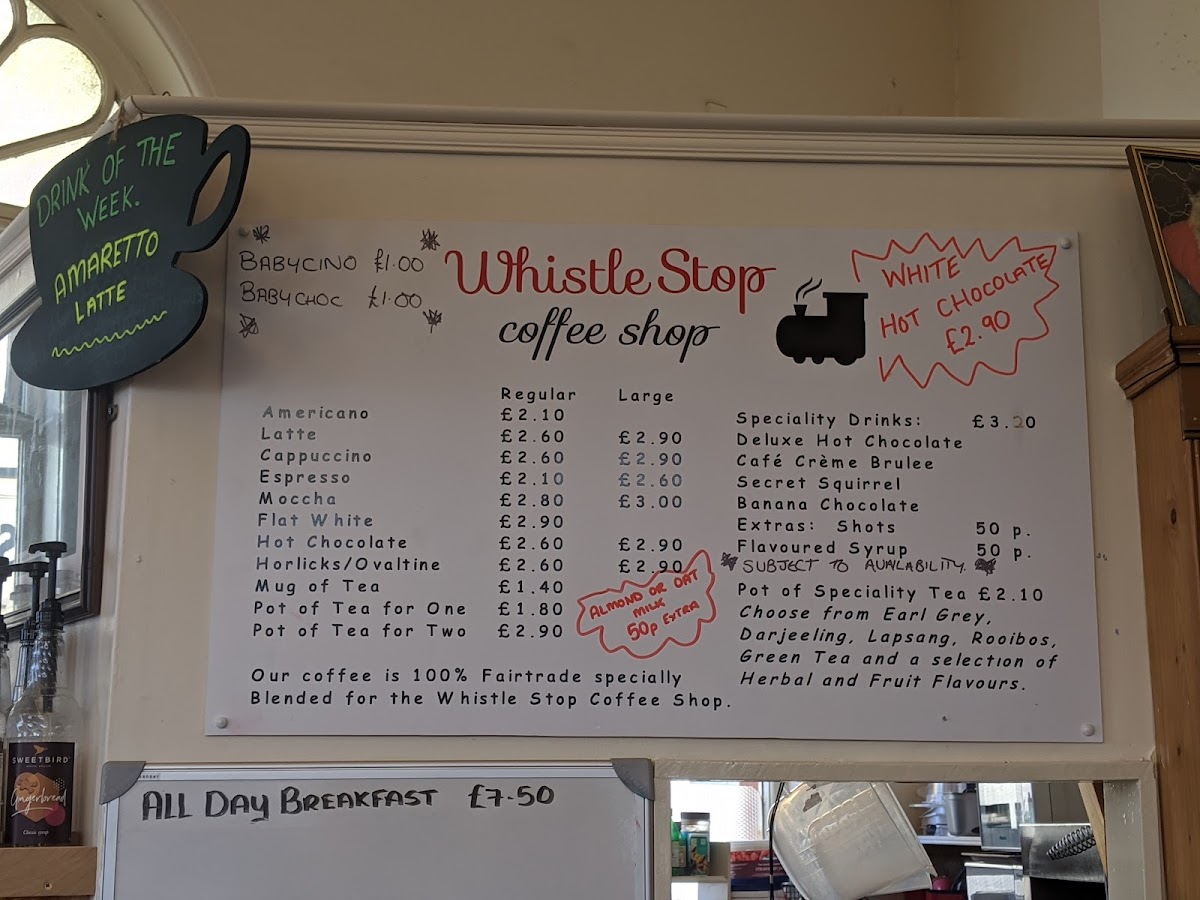 DRINK OF THE
WEEK.
AMARETTO
LATTE
BABYCINO £1.00
BABYCHOC £1.00
Whistle Stop
coffee shop
WHITE
HOT CHOCOLATE
£2.90
Regular Large
Americano £2.10
Latte £2.60 £2.90
Cappuccino £2.60 £2.90
Espresso £2.10 £2.60
Moccha £2.80 £3.00
Flat White £2.90
Hot Chocolate £2.60 £2.90
Horlicks/Ovaltine £2.60 £2.90
Mug of Tea £1.40
Pot of Tea for One £1.80
Pot of Tea for Two £2.90
ALMOND OR OAT
MILK
50p EXTRA
Our coffee is 100% Fairtrade specially
Blended for the Whistle Stop Coffee Shop.
Speciality Drinks: £3.20
Deluxe Hot Chocolate
Café Crème Brulee
Secret Squirrel
Banana Chocolate
Extras: Shots 50 p.
Flavoured Syrup 50 p.
SUBJECT TO AVAILABILITY.
Pot of Speciality Tea £2.10
Choose from Earl Grey,
Darjeeling, Lapsang, Rooibos,
Green Tea and a selection of
Herbal and Fruit Flavours.
ALL DAY BREAKFAST £7.50
SWEETBIRD
Gingerbread
Classic syrup